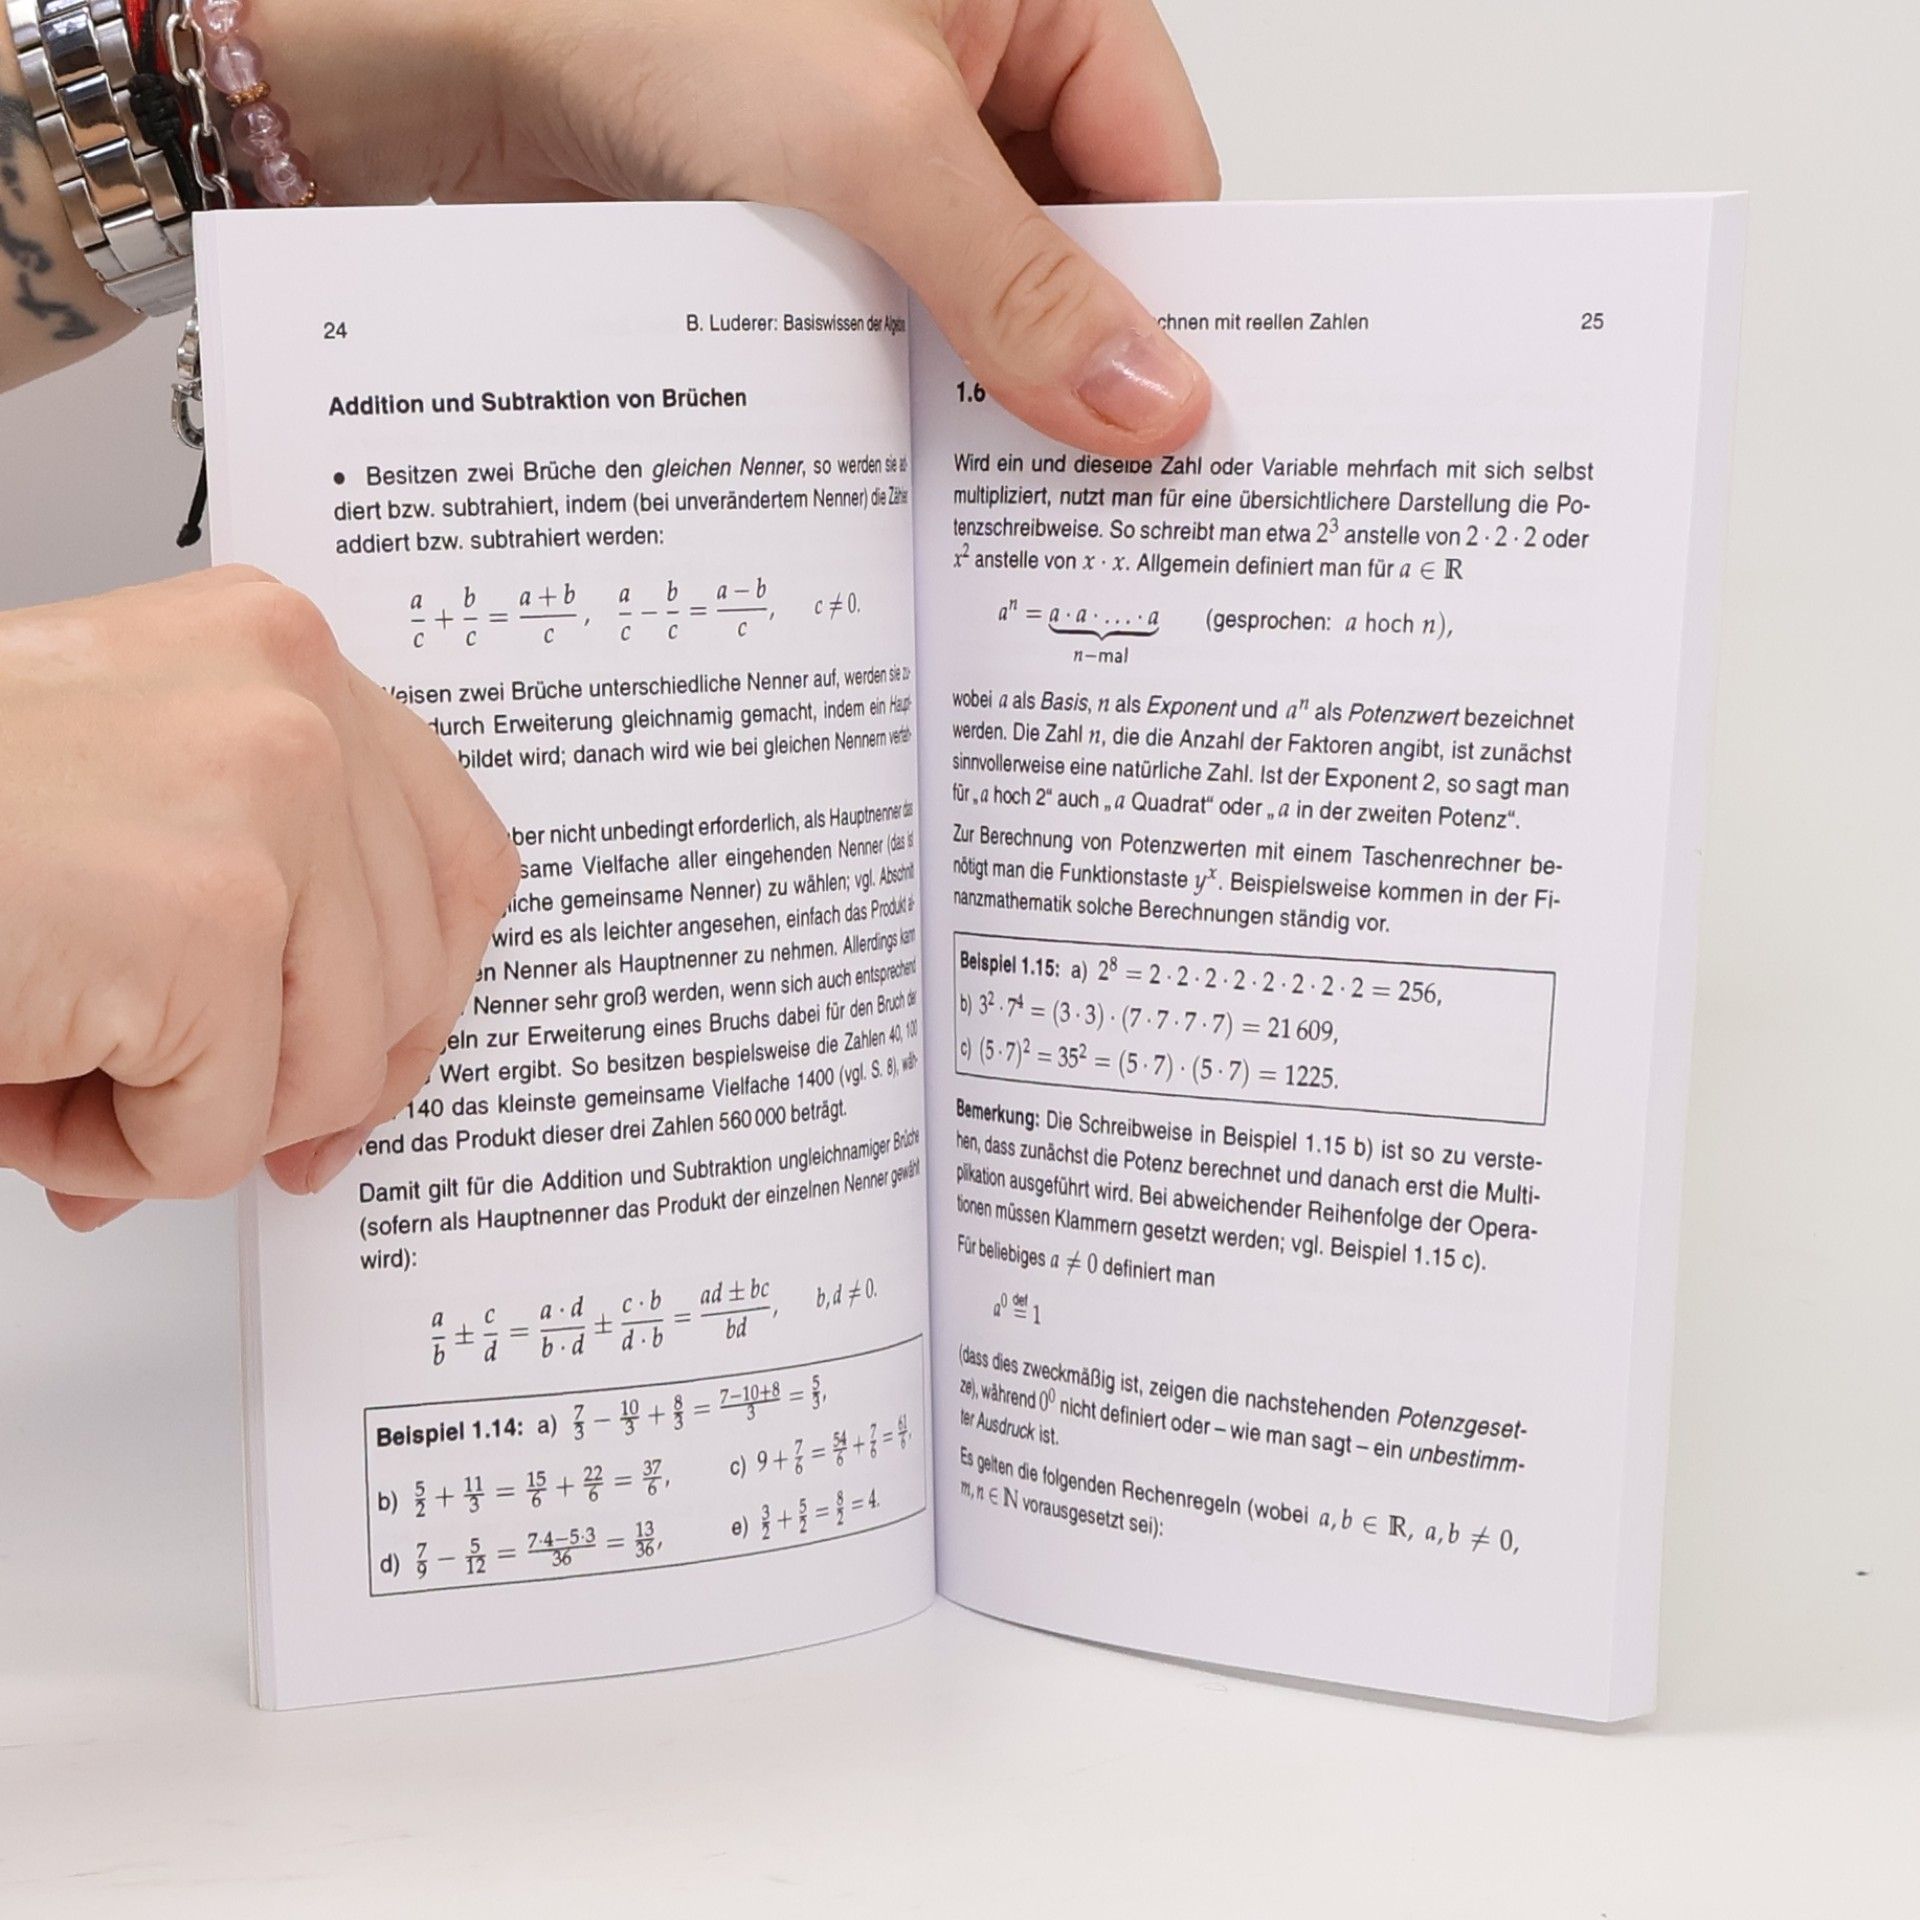 24
B. Luderer: Basiswissen der Algebra
Addition und Subtraktion von Brüchen
• Besitzen zwei Brüche den gleichen Nenner, so werden sie ad-
diert bzw. subtrahiert, indem (bei unverändertem Nenner) die Zähler
addiert bzw. subtrahiert werden:
a/c + b/c = (a+b)/c, a/c − b/c = (a−b)/c, c ≠ 0.
eisen zwei Brüche unterschiedliche Nenner auf, werden sie zu-
durch Erweiterung gleichnamig gemacht, indem ein Haupt-
bildet wird; danach wird wie bei gleichen Nennern verfah-
ber nicht unbedingt erforderlich, als Hauptnenner das
same Vielfache aller eingehenden Nenner (das ist
iche gemeinsame Nenner) zu wählen; vgl. Abschnitt
wird es als leichter angesehen, einfach das Produkt al-
en Nenner als Hauptnenner zu nehmen. Allerdings kann
Nenner sehr groß werden, wenn sich auch entsprechend
eln zur Erweiterung eines Bruchs dabei für den Bruch der
Wert ergibt. So besitzen bespielsweise die Zahlen 40, 100
140 das kleinste gemeinsame Vielfache 1400 (vgl. S. 8), wäh-
rend das Produkt dieser drei Zahlen 560 000 beträgt.
Damit gilt für die Addition und Subtraktion ungleichnamiger Brüche
(sofern als Hauptnenner das Produkt der einzelnen Nenner gewählt
wird):
a/b ± c/d = (a·d)/(b·d) ± (c·b)/(d·b) = (ad ± bc)/bd, b,d ≠ 0.
Beispiel 1.14: a) 7/3 − 10/3 + 8/3 = (7−10+8)/3 = 5/3,
b) 5/2 + 11/3 = 15/6 + 22/6 = 37/6, c) 9 + 7/6 = 54/6 + 7/6 = 61/6,
d) 7/9 − 5/12 = (7·4−5·3)/36 = 13/36, e) 3/2 + 5/2 = 8/2 = 4.
chnen mit reellen Zahlen
25
1.6
Wird ein und dieselbe Zahl oder Variable mehrfach mit sich selbst
multipliziert, nutzt man für eine übersichtlichere Darstellung die Po-
tenzschreibweise. So schreibt man etwa 2³ anstelle von 2 · 2 · 2 oder
x² anstelle von x · x. Allgemein definiert man für a ∈ ℝ
aⁿ = a · a · … · a (gesprochen: a hoch n),
n−mal
wobei a als Basis, n als Exponent und aⁿ als Potenzwert bezeichnet
werden. Die Zahl n, die die Anzahl der Faktoren angibt, ist zunächst
sinnvollerweise eine natürliche Zahl. Ist der Exponent 2, so sagt man
für „a hoch 2“ auch „a Quadrat“ oder „a in der zweiten Potenz“.
Zur Berechnung von Potenzwerten mit einem Taschenrechner be-
nötigt man die Funktionstaste yˣ. Beispielsweise kommen in der Fi-
nanzmathematik solche Berechnungen ständig vor.
Beispiel 1.15: a) 2⁸ = 2 · 2 · 2 · 2 · 2 · 2 · 2 · 2 = 256,
b) 3² · 7⁴ = (3 · 3) · (7 · 7 · 7 · 7) = 21 609,
c) (5 · 7)² = 35² = (5 · 7) · (5 · 7) = 1225.
Bemerkung: Die Schreibweise in Beispiel 1.15 b) ist so zu verste-
hen, dass zunächst die Potenz berechnet und danach erst die Multi-
plikation ausgeführt wird. Bei abweichender Reihenfolge der Opera-
tionen müssen Klammern gesetzt werden; vgl. Beispiel 1.15 c).
Für beliebiges a ≠ 0 definiert man
a⁰ def= 1
(dass dies zweckmäßig ist, zeigen die nachstehenden Potenzgeset-
ze), während 0⁰ nicht definiert oder – wie man sagt – ein unbestimm-
ter Ausdruck ist.
Es gelten die folgenden Rechenregeln (wobei a, b ∈ ℝ, a, b ≠ 0,
m, n ∈ ℕ vorausgesetzt sei):